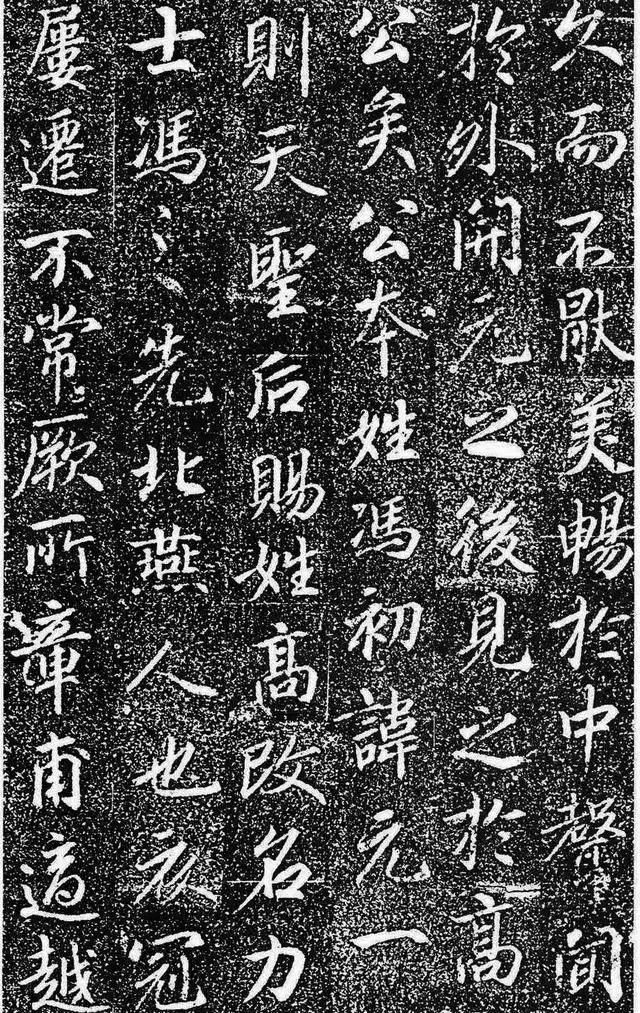 久而不猒美暢於中聲聞
於外開元之後見之於高
公矣公本姓馮初諱元一
則天聖后賜姓高改名力
士馮之先北燕人也衣冠
屢遷不常厥所章甫適越